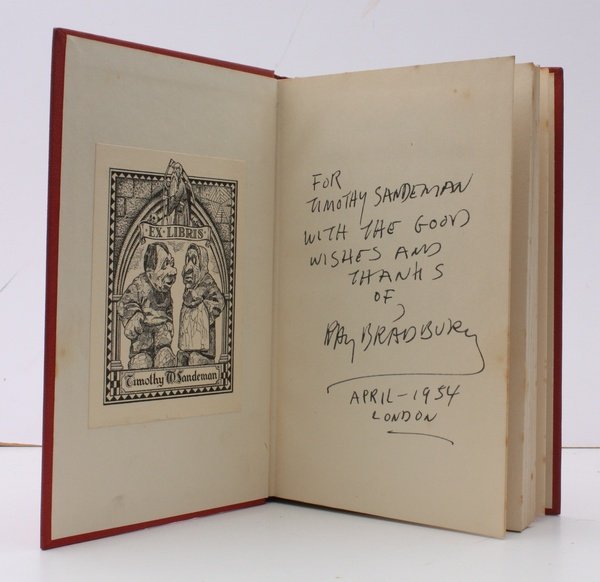 EX·LIBRIS
Timothy W. Sandeman
FOR
TIMOTHY SANDEMAN
WITH THE GOOD
WISHES AND
THANKS
OF,
RAY BRADBURY
APRIL – 1954
LONDON